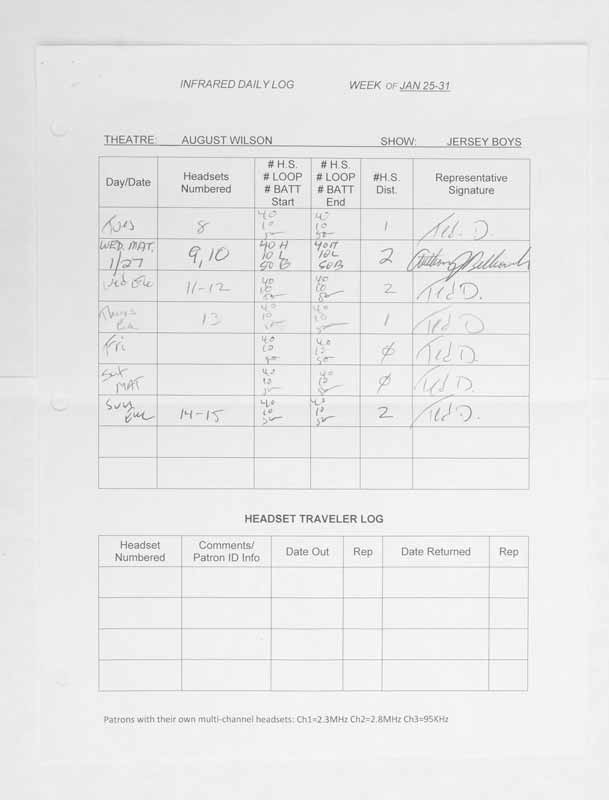 INFRARED DAILY LOG WEEK OF JAN 25-31
THEATRE: AUGUST WILSON SHOW: JERSEY BOYS
Day/Date Headsets Numbered # H.S. # LOOP # BATT Start # H.S. # LOOP # BATT End #H.S. Dist. Representative Signature
Tues 8 40 10 50 40 10 50 1 Ted. D.
WED. MAT. 1/27 9,10 40H 10L 50B 40H 10L 50B 2
Wed Eve 11-12 40 10 50 40 10 50 2 Ted D.
Thurs Eve 13 40 10 50 40 10 50 1 Ted D
Fri 40 10 50 40 10 50 Ø Ted D.
Sat MAT 40 10 50 40 10 50 Ø Ted D.
Sun Eve 14-15 40 10 50 40 10 50 2 Ted D.
HEADSET TRAVELER LOG
Headset Numbered Comments/ Patron ID Info Date Out Rep Date Returned Rep
Patrons with their own multi-channel headsets: Ch1=2.3MHz Ch2=2.8MHz Ch3=95KHz